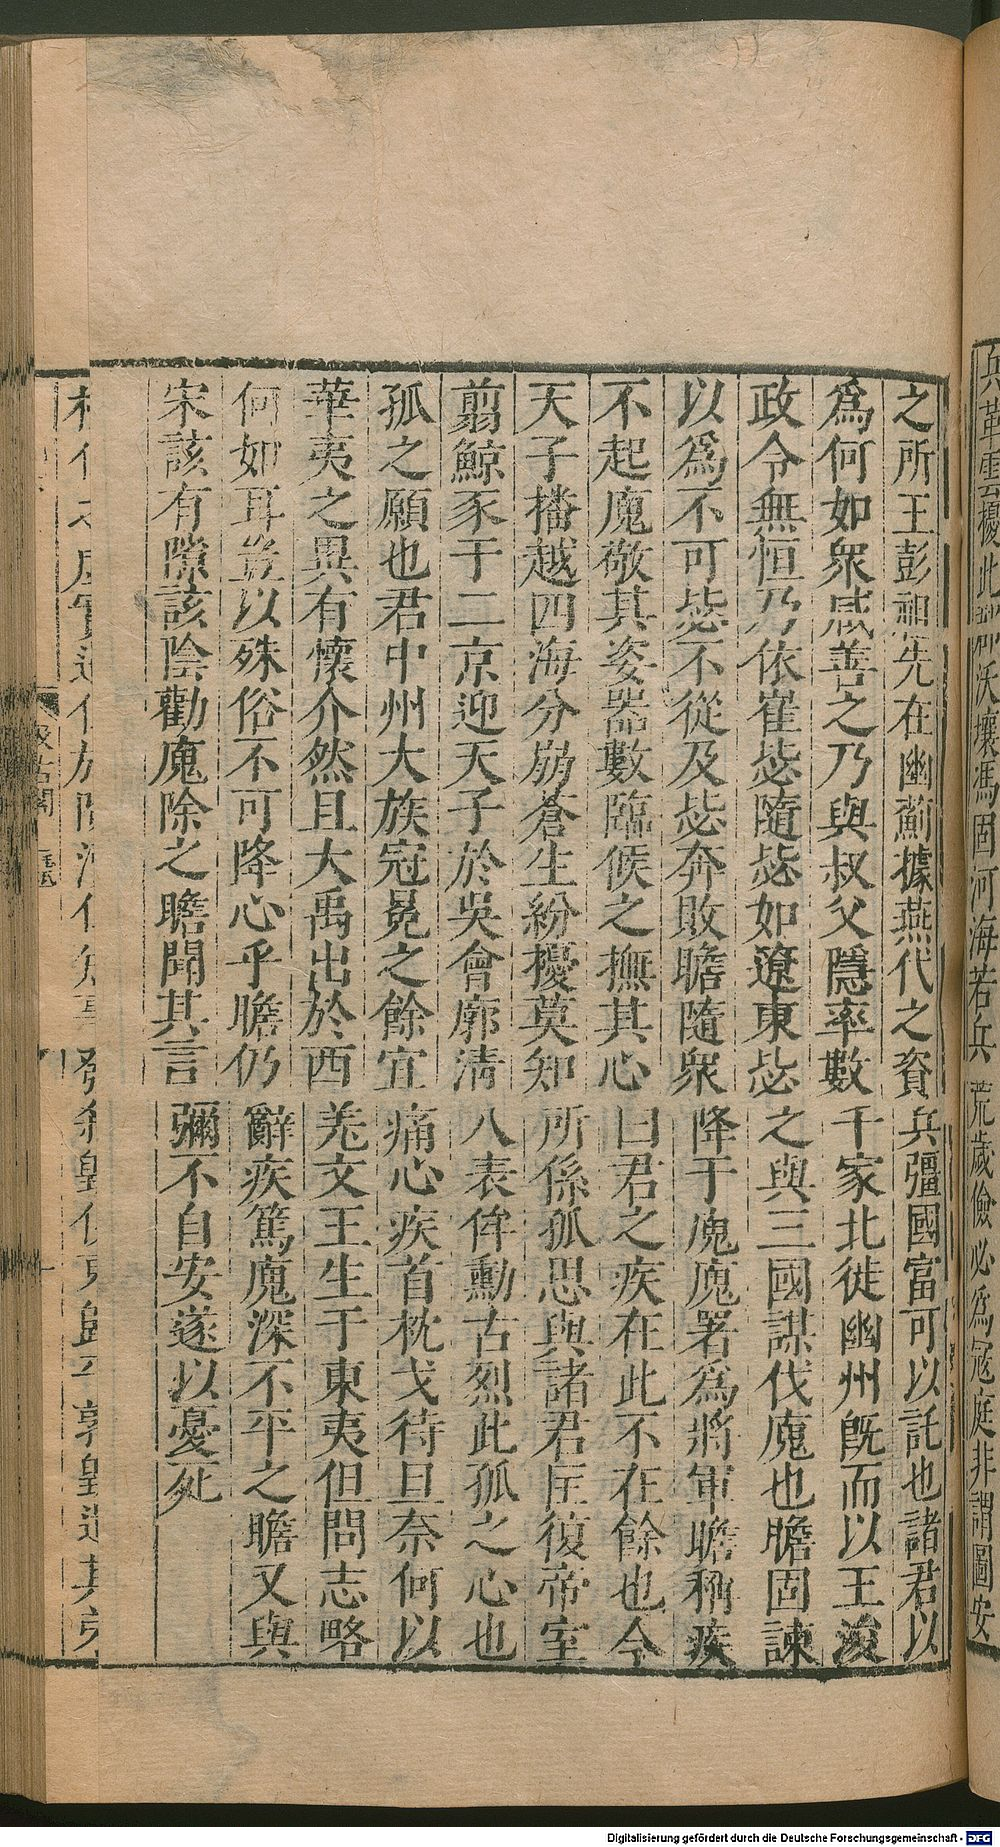 兵革雲擾此 沃壤馮固河海若兵荒歲儉必為寇庭非謂圖安
之所王彭祖先在幽薊據燕代之資兵彊國富可以託也諸君以
為何如衆咸善之乃與叔父隱率數千家北徙幽州旣而以王浚
政令無恒乃依崔毖隨毖如遼東毖之與三國謀伐廆也瞻固諫
以為不可毖不從及毖奔敗瞻隨衆降于廆廆署為將軍瞻稱疾
不起廆敬其姿器數臨候之撫其心曰君之疾在此不在餘也今
天子播越四海分崩蒼生紛擾莫知所係孤思與諸君匡復帝室
翦鯨豕于二京迎天子於吳會廓清八表侔勳古烈此孤之心也
孤之願也君中州大族冠冕之餘宜痛心疾首枕戈待旦奈何以
華夷之異有懷介然且大禹出於西羗文王生于東夷但問志略
何如耳豈以殊俗不可降心乎瞻仍辭疾篤廆深不平之瞻又與
宋該有隙該陰勸廆除之瞻聞其言彌不自安遂以憂死
汲古閣
Digitalisierung gefördert durch die Deutsche Forschungsgemeinschaft - DFG